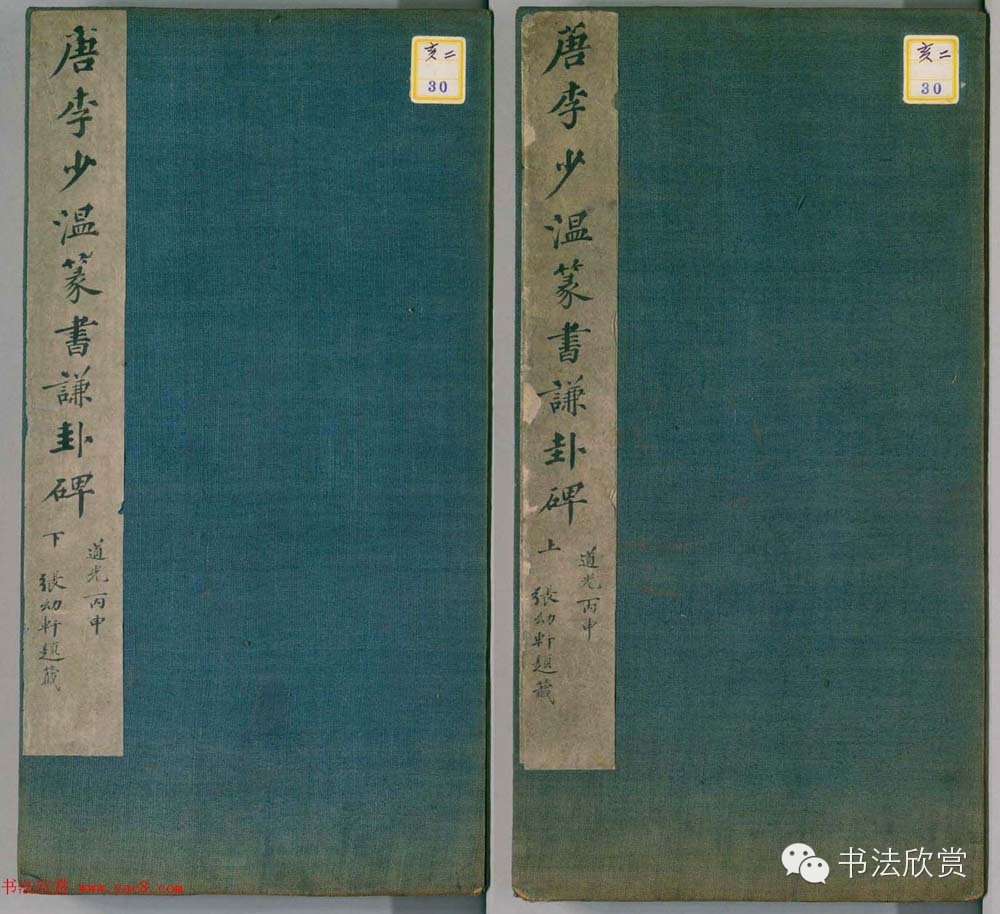 唐李少温篆書謙卦碑 下
道光丙申
張幼軒題籤
亥二
30
唐李少温篆書謙卦碑 上
道光丙申
張幼軒題籤
亥二
30
书法欣赏
书法欣赏 www.yac8.com